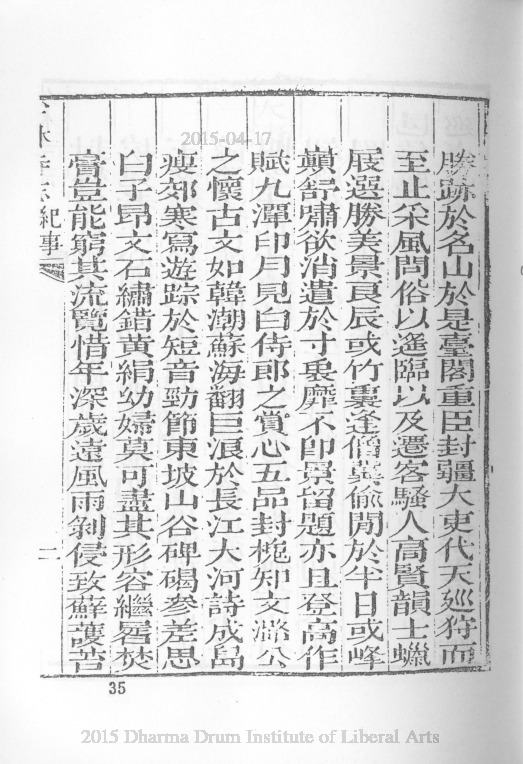 勝跡於名山於是臺閣重臣封疆大吏代天廵狩而
至止采風問俗以遙臨以及遷客騷人高賢韻士蠟
屐選勝美景良辰或竹裏逢僧冀偷閒於半日或峰
巔舒嘯欲消遣於寸裏靡不即景留題亦且登高作
賦九潭印月見白侍郎之賞心五品封桅知文公
之懷古文如韓潮蘇海翻巨浪於長江大河詩成島
瘦郊寒寫遊踪於短音勁節東坡山谷碑碣參差思
白子昂文石繡錯黃絹幼婦莫可盡其形容繼晷焚
膏豈能窮其流覽惜年深歲遠風雨剝侵致蘚護苔
紀事
二
35
2015-04-17
2015 Dharma Drum Institute of Liberal Arts